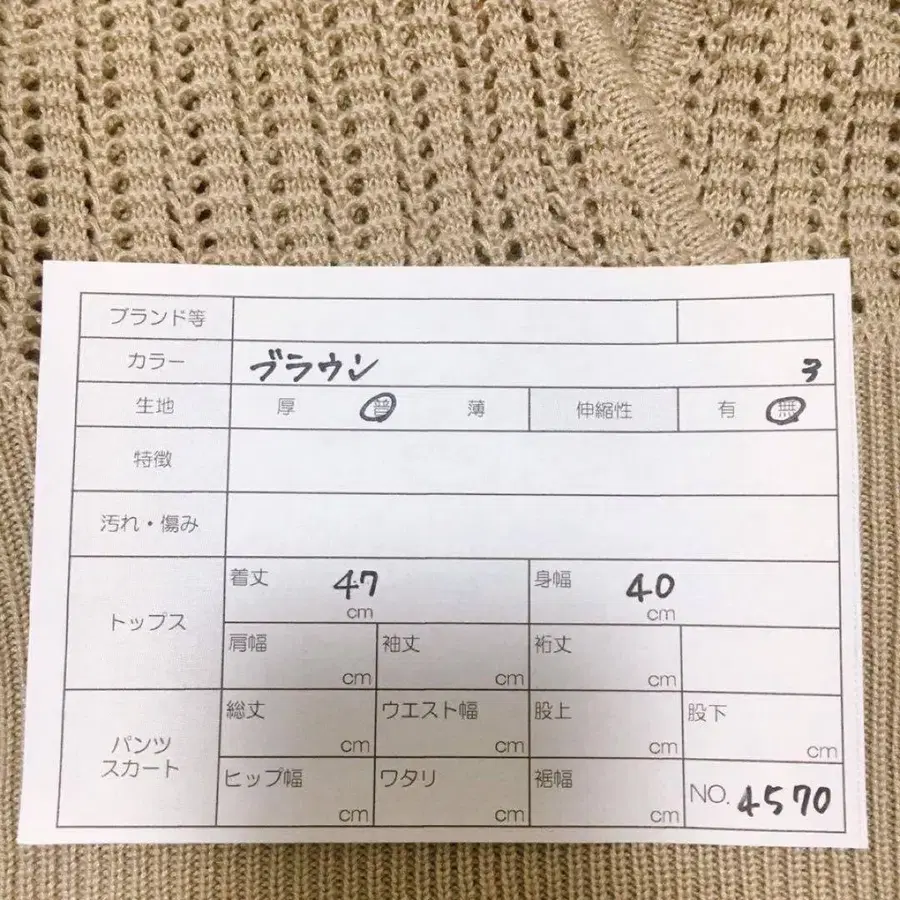 ブランド等
カラー ブラウン 3
生地 厚 普 薄 伸縮性 有 無
特徴
汚れ・傷み
トップス
着丈 47 cm 身幅 40 cm
肩幅 cm 袖丈 cm 裄丈 cm
パンツ
スカート
総丈 cm ウエスト幅 cm 股上 cm 股下 cm
ヒップ幅 cm ワタリ cm 裾幅 cm NO. 4570